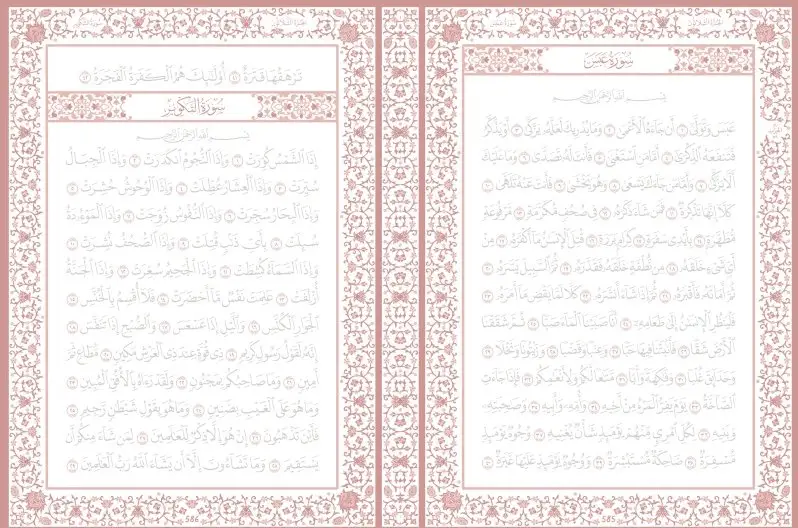 سُورَةُ عَبَسَ
بِسْمِ اللَّهِ الرَّحْمَٰنِ الرَّحِيمِ
عَبَسَ وَتَوَلَّىٰ ١ أَن جَاءَهُ الْأَعْمَىٰ ٢ وَمَا يُدْرِيكَ لَعَلَّهُ يَزَّكَّىٰ ٣ أَوْ يَذَّكَّرُ
فَتَنفَعَهُ الذِّكْرَىٰ ٤ أَمَّا مَنِ اسْتَغْنَىٰ ٥ فَأَنتَ لَهُ تَصَدَّىٰ ٦ وَمَا عَلَيْكَ
أَلَّا يَزَّكَّىٰ ٧ وَأَمَّا مَن جَاءَكَ يَسْعَىٰ ٨ وَهُوَ يَخْشَىٰ ٩ فَأَنتَ عَنْهُ تَلَهَّىٰ ١٠
كَلَّا إِنَّهَا تَذْكِرَةٌ ١١ فَمَن شَاءَ ذَكَرَهُ ١٢ فِي صُحُفٍ مُّكَرَّمَةٍ ١٣ مَّرْفُوعَةٍ
مُّطَهَّرَةٍ ١٤ بِأَيْدِي سَفَرَةٍ ١٥ كِرَامٍ بَرَرَةٍ ١٦ قُتِلَ الْإِنسَانُ مَا أَكْفَرَهُ ١٧ مِنْ
أَيِّ شَيْءٍ خَلَقَهُ ١٨ مِن نُّطْفَةٍ خَلَقَهُ فَقَدَّرَهُ ١٩ ثُمَّ السَّبِيلَ يَسَّرَهُ ٢٠
ثُمَّ أَمَاتَهُ فَأَقْبَرَهُ ٢١ ثُمَّ إِذَا شَاءَ أَنشَرَهُ ٢٢ كَلَّا لَمَّا يَقْضِ مَا أَمَرَهُ ٢٣
فَلْيَنظُرِ الْإِنسَانُ إِلَىٰ طَعَامِهِ ٢٤ أَنَّا صَبَبْنَا الْمَاءَ صَبًّا ٢٥ ثُمَّ شَقَقْنَا
الْأَرْضَ شَقًّا ٢٦ فَأَنبَتْنَا فِيهَا حَبًّا ٢٧ وَعِنَبًا وَقَضْبًا ٢٨ وَزَيْتُونًا وَنَخْلًا ٢٩
وَحَدَائِقَ غُلْبًا ٣٠ وَفَاكِهَةً وَأَبًّا ٣١ مَّتَاعًا لَّكُمْ وَلِأَنْعَامِكُمْ ٣٢ فَإِذَا جَاءَتِ
الصَّاخَّةُ ٣٣ يَوْمَ يَفِرُّ الْمَرْءُ مِنْ أَخِيهِ ٣٤ وَأُمِّهِ وَأَبِيهِ ٣٥ وَصَاحِبَتِهِ
وَبَنِيهِ ٣٦ لِكُلِّ امْرِئٍ مِّنْهُمْ يَوْمَئِذٍ شَأْنٌ يُغْنِيهِ ٣٧ وُجُوهٌ يَوْمَئِذٍ
مُّسْفِرَةٌ ٣٨ ضَاحِكَةٌ مُّسْتَبْشِرَةٌ ٣٩ وَوُجُوهٌ يَوْمَئِذٍ عَلَيْهَا غَبَرَةٌ ٤٠
585
تَرْهَقُهَا قَتَرَةٌ ٤١ أُولَٰئِكَ هُمُ الْكَفَرَةُ الْفَجَرَةُ ٤٢
سُورَةُ التَّكْوِيرِ
بِسْمِ اللَّهِ الرَّحْمَٰنِ الرَّحِيمِ
إِذَا الشَّمْسُ كُوِّرَتْ ١ وَإِذَا النُّجُومُ انكَدَرَتْ ٢ وَإِذَا الْجِبَالُ
سُيِّرَتْ ٣ وَإِذَا الْعِشَارُ عُطِّلَتْ ٤ وَإِذَا الْوُحُوشُ حُشِرَتْ ٥
وَإِذَا الْبِحَارُ سُجِّرَتْ ٦ وَإِذَا النُّفُوسُ زُوِّجَتْ ٧ وَإِذَا الْمَوْءُودَةُ
سُئِلَتْ ٨ بِأَيِّ ذَنبٍ قُتِلَتْ ٩ وَإِذَا الصُّحُفُ نُشِرَتْ ١٠
وَإِذَا السَّمَاءُ كُشِطَتْ ١١ وَإِذَا الْجَحِيمُ سُعِّرَتْ ١٢ وَإِذَا الْجَنَّةُ
أُزْلِفَتْ ١٣ عَلِمَتْ نَفْسٌ مَّا أَحْضَرَتْ ١٤ فَلَا أُقْسِمُ بِالْخُنَّسِ ١٥
الْجَوَارِ الْكُنَّسِ ١٦ وَاللَّيْلِ إِذَا عَسْعَسَ ١٧ وَالصُّبْحِ إِذَا تَنَفَّسَ ١٨
إِنَّهُ لَقَوْلُ رَسُولٍ كَرِيمٍ ١٩ ذِي قُوَّةٍ عِندَ ذِي الْعَرْشِ مَكِينٍ ٢٠ مُّطَاعٍ ثَمَّ
أَمِينٍ ٢١ وَمَا صَاحِبُكُم بِمَجْنُونٍ ٢٢ وَلَقَدْ رَآهُ بِالْأُفُقِ الْمُبِينِ ٢٣
وَمَا هُوَ عَلَى الْغَيْبِ بِضَنِينٍ ٢٤ وَمَا هُوَ بِقَوْلِ شَيْطَانٍ رَّجِيمٍ ٢٥
فَأَيْنَ تَذْهَبُونَ ٢٦ إِنْ هُوَ إِلَّا ذِكْرٌ لِّلْعَالَمِينَ ٢٧ لِمَن شَاءَ مِنكُمْ أَن
يَسْتَقِيمَ ٢٨ وَمَا تَشَاءُونَ إِلَّا أَن يَشَاءَ اللَّهُ رَبُّ الْعَالَمِينَ ٢٩
586